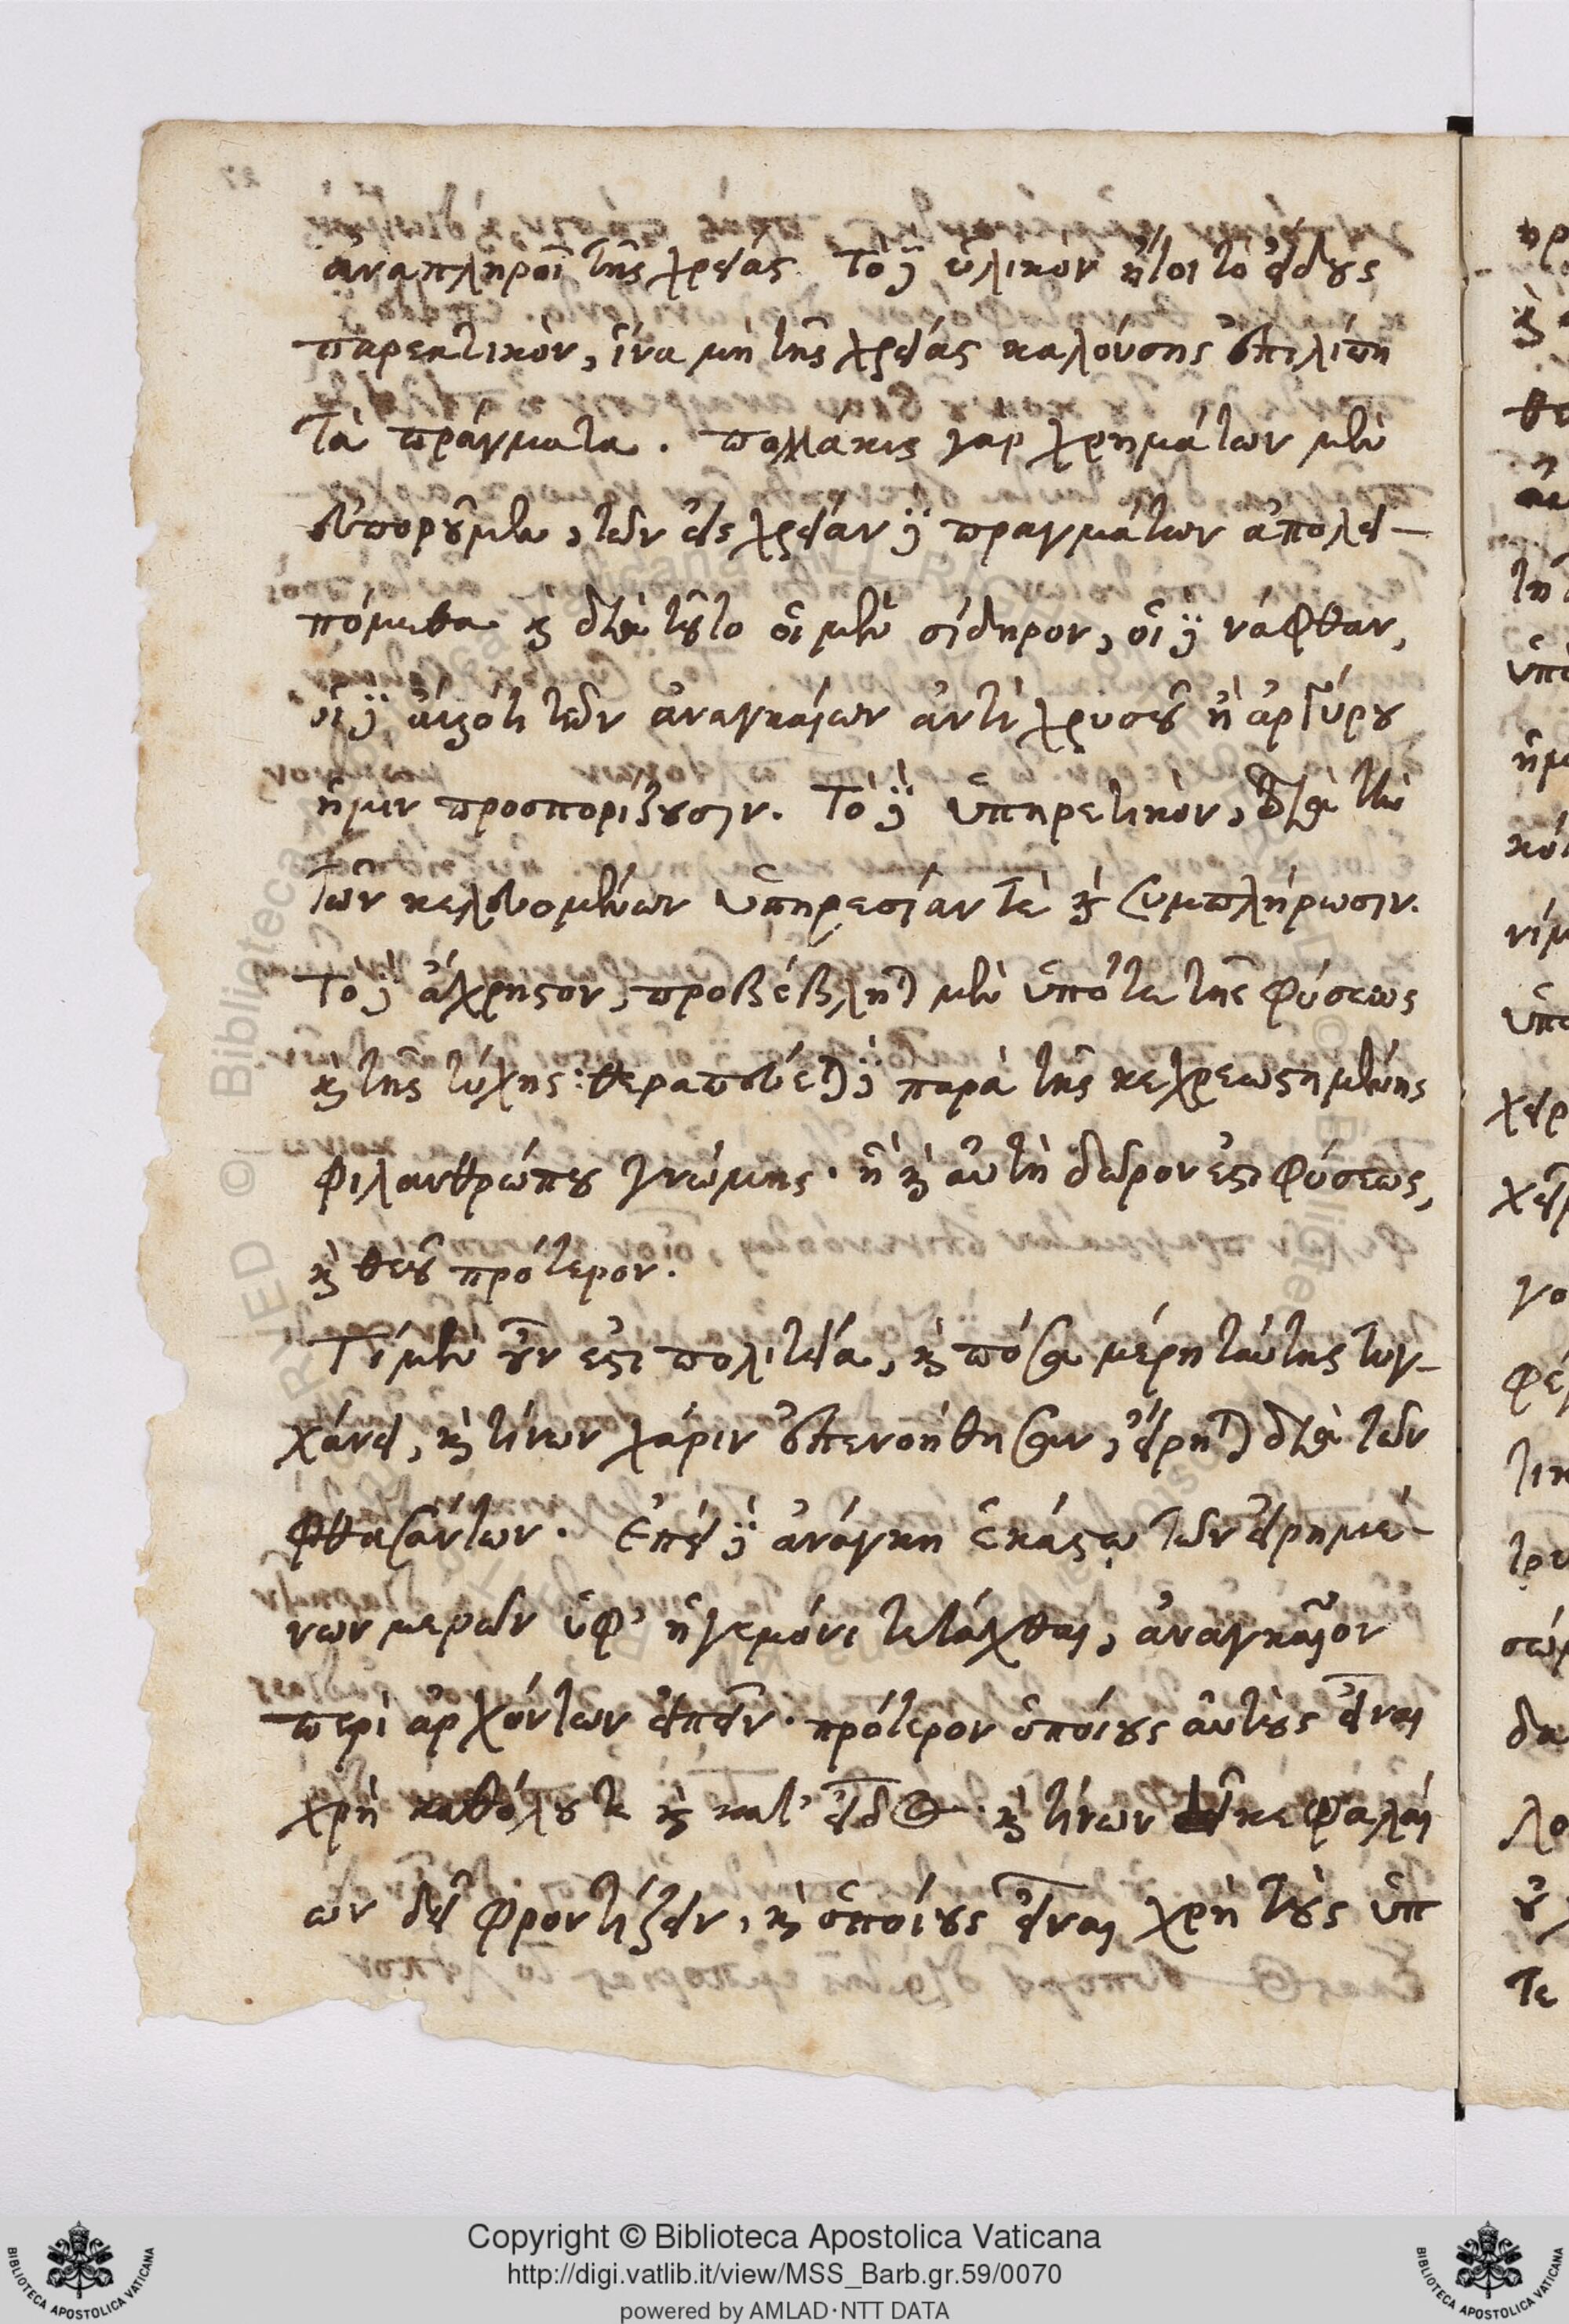 ἀναπληροῖ τῆς χρείας. Τὸ δὲ ὑλικὸν ἤτοι τὸ εἴδους
παρεκτικὸν, ἵνα μὴ τῆς χρείας καλούσης ἐπιλίπῃ
τὰ πράγματα. πολλάκις γὰρ χρημάτων μὲν
εὐποροῦμεν, τῶν εἰς χρείαν δὲ πραγμάτων ἀπολει-
πόμεθα καὶ διὰ τοῦτο οἱ μὲν σίδηρον, οἱ δὲ νάφθαν,
οἱ δὲ τῶν ἀναγκαίων ἀντὶ χρυσοῦ ἢ ἀργύρου
ἡμιν προσποριζουσιν. Τὸ δὲ ὑπηρετικὸν, διὰ τὴν
τῶν κελευομένων ὑπηρεσίαν τὲ καὶ συμπλήρωσιν.
Τὸ δὲ ἄχρηστον, προβέβληται μὲν ὑπό τε τῆς φύσεως
καὶ τῆς τύχης: θεραπεύεται δὲ παρὰ τῆς κεχρεωστημένης
φιλανθρώπου γνώμης. ἣ καὶ αὐτὴ δῶρον ἐστι φύσεως,
καὶ θεοῦ πρότερον.
Τί μὲν οὖν ἐστι πολιτεία, καὶ πόσα μέρη ταύτης τυγ-
χάνει, καὶ τίνων χάριν ἐπενοήθησαν, εἴρηται διὰ τῶν
φθασάντων. Ἐπεὶ δὲ ἀνάγκη ἑκάστῳ τῶν εἰρημέ-
νων μερῶν ὑφ' ἡγεμόνι τετάχθαι, ἀναγκαῖον
περὶ ἀρχόντων εἰπεῖν. πρότερον ὁποίους αὐτοὺς εἶναι
χρὴ καθόλου τε καὶ κατ' εἶδος. καὶ τίνων κεφαλαί
ων δεῖ φροντίζειν, καὶ ὁποίους εἶναι χρὴ τοὺς ὑπ
Copyright © Biblioteca Apostolica Vaticana
http://digi.vatlib.it/view/MSS_Barb.gr.59/0070
powered by AMLAD·NTT DATA
BIBLIOTECA APOSTOLICA VATICANA
BIBLIOTECA APOSTOLICA VATICANA